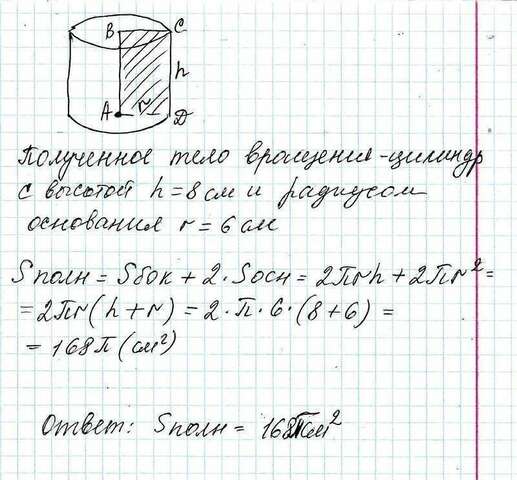 B C
h
A r D
Полученное тело вращения - цилиндр
с высотой h = 8 см и радиусом
основания r = 6 см
Sполн = Sбок + 2 · Sосн = 2πrh + 2πr² =
= 2πr(h + r) = 2 · π · 6 · (8 + 6) =
= 168π (см²)
Ответ: Sполн = 168π см²